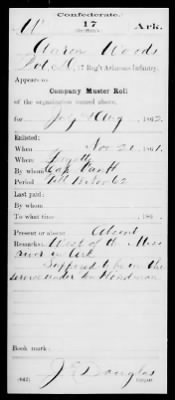 Confederate.
W 17 Ark.
Aaron Woods
17 Reg't Arkansas Infantry.
Appears on
Company Muster Roll
of the organization named above,
for July & Aug, 1862.
Enlisted:
When Nov 21, 1861.
Where Fayette
By whom Capt
Period
Last paid:
By whom
To what time , 186 .
Present or absent Absent
Remarks: West of the Miss
River in Ark
Supposed to be in the
service under
Book mark:
J E Douglas
(642) Copyist.